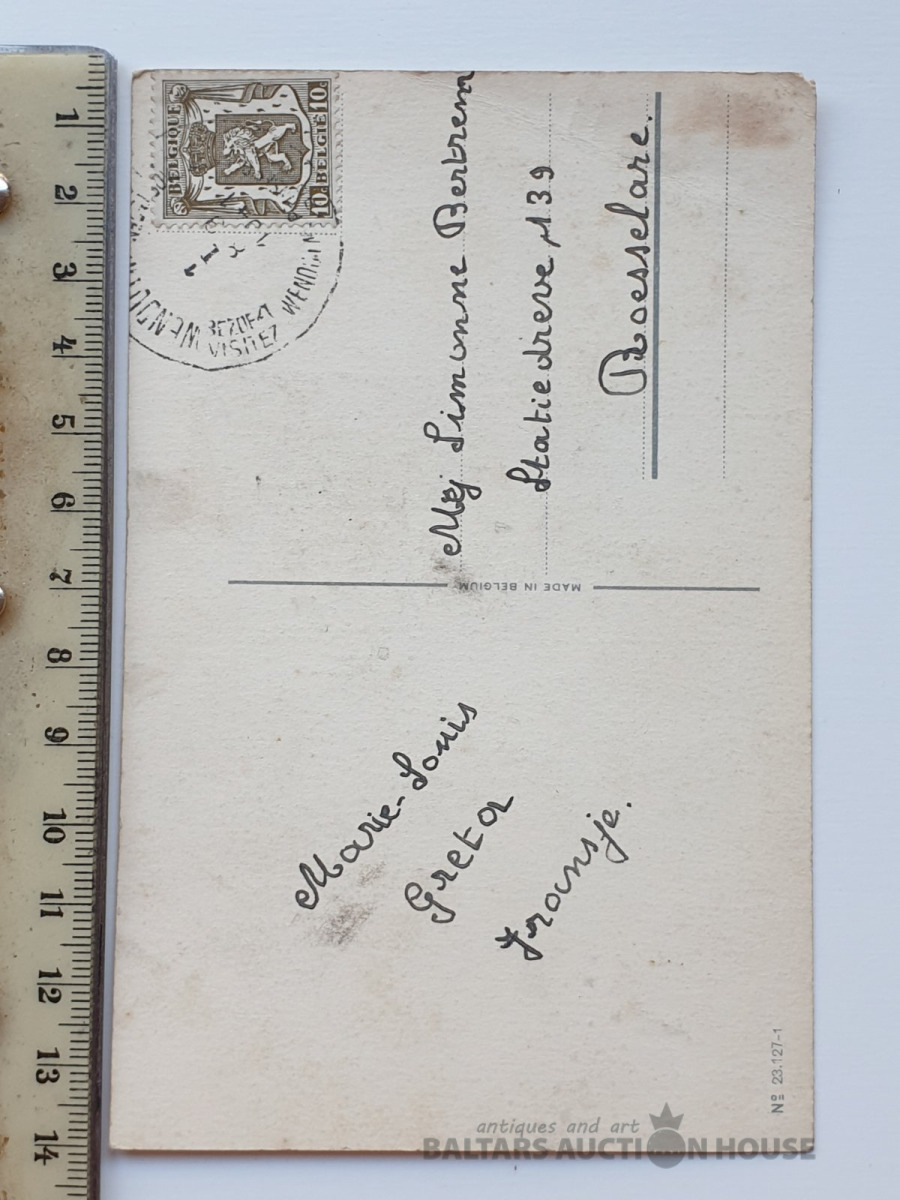 BELGIQUE
10c
10c
BELGIË
BEZOEKT
VISITEZ
WENDUINE
Mej Simonne Bertrem
Statiedreve, 139
Roesselare.
MADE IN BELGIUM
Marie-Louis
Greta
Fransje.
Nº 23.127-1
1
2
3
4
5
6
7
8
9
10
11
12
13
14
antiques and art
BALTARS AUCTION HOUSE